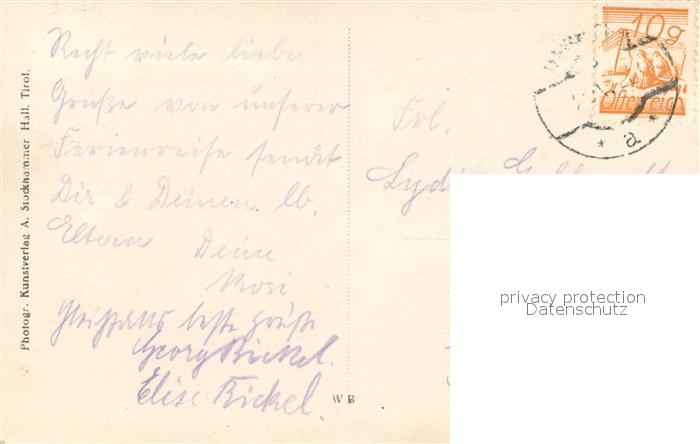 Recht viele liebe
Grüße von unserer
Ferienreise sendet
Dir & Deinen lb.
Eltern Deine
Rosi
Gleichfalls beste Grüße
Georg Bickel.
Elise Bickel.
Frl.
Lydia
Photogr. Kunstverlag A. Stockhammer Hall, Tirol.
W B
10g
Österreich
* a *
privacy protection
Datenschutz